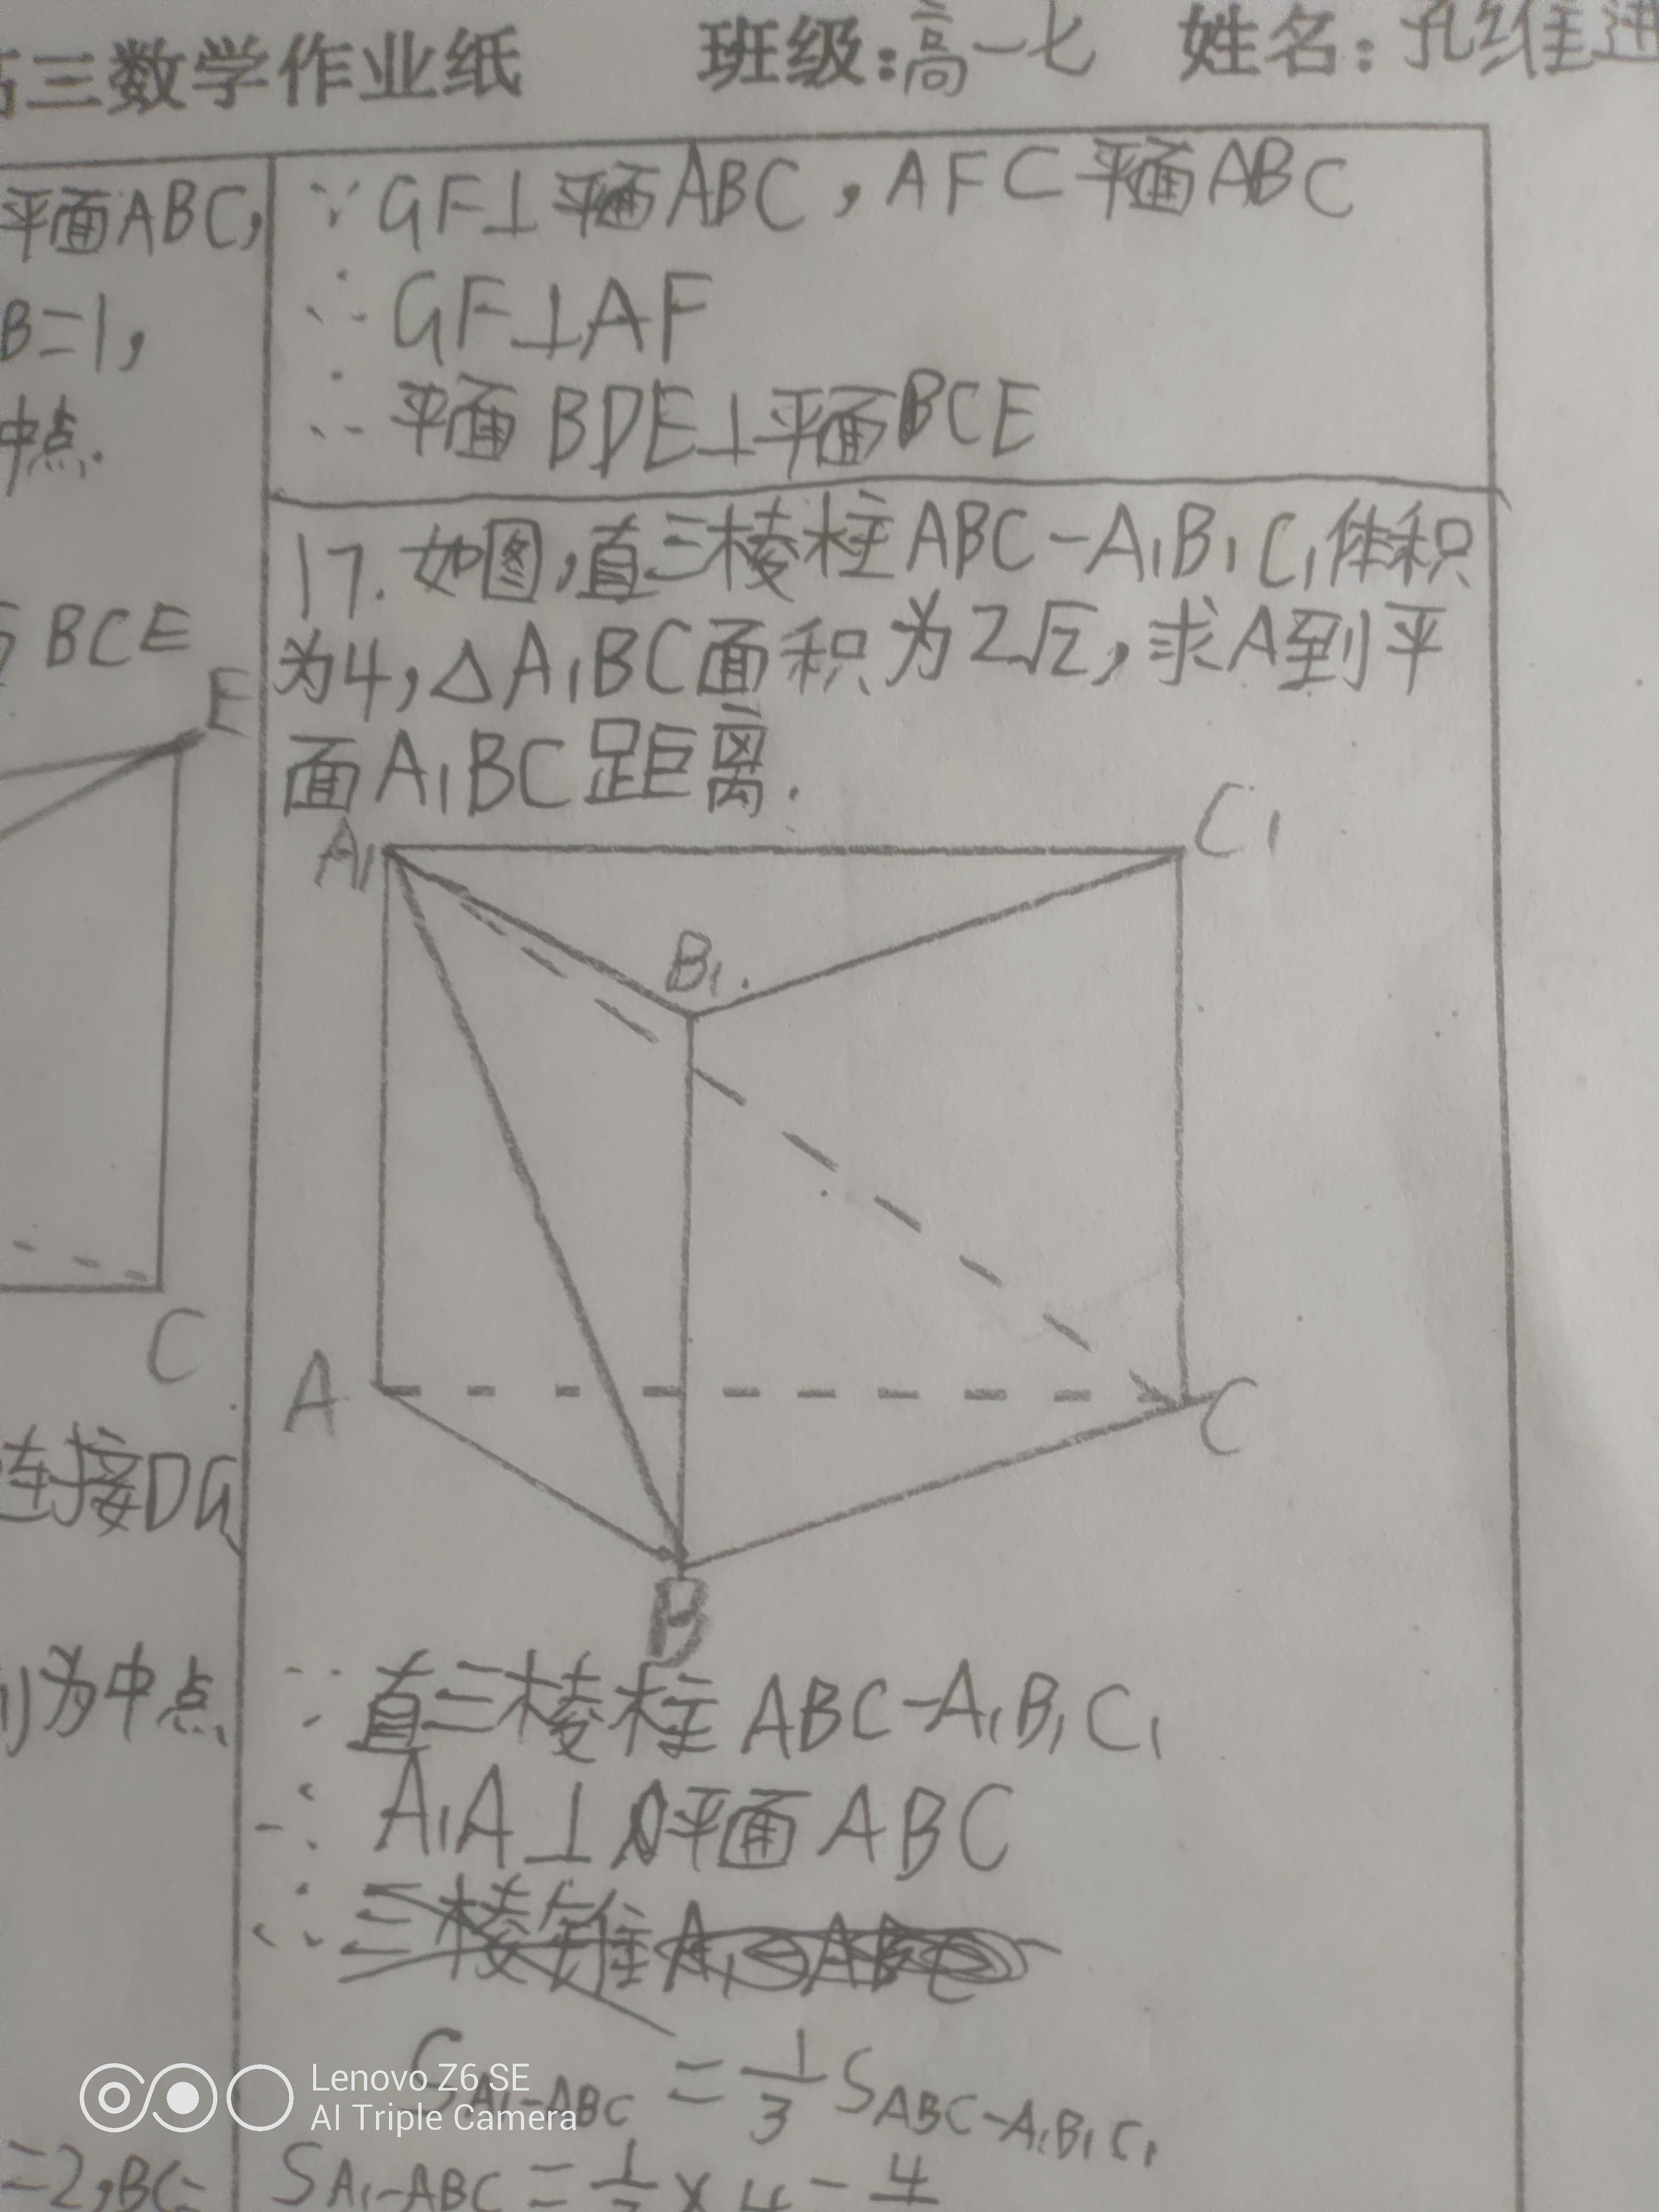 三数学作业纸 班级:高一七 姓名:孔维迅
平面ABC,
B=1,
中点.
BCE
E
C
连接DG
为中点
=2,BC=
∵GF⊥平面ABC,AF⊂平面ABC
∴GF⊥AF
∴平面BDE⊥平面BCE
17.如图,直三棱柱ABC-A₁B₁C₁体积
为4,△A₁BC面积为2√2,求A到平
面A₁BC距离.
A₁
C₁
B₁
A
C
B
∵直三棱柱ABC-A₁B₁C₁
∴A₁A⊥平面ABC
∴三棱锥A₁-ABC
S_{A₁-ABC}=1/3 S_{ABC-A₁B₁C₁}
S_{A₁-ABC}=1/3×4=4
Lenovo Z6 SE
AI Triple Camera